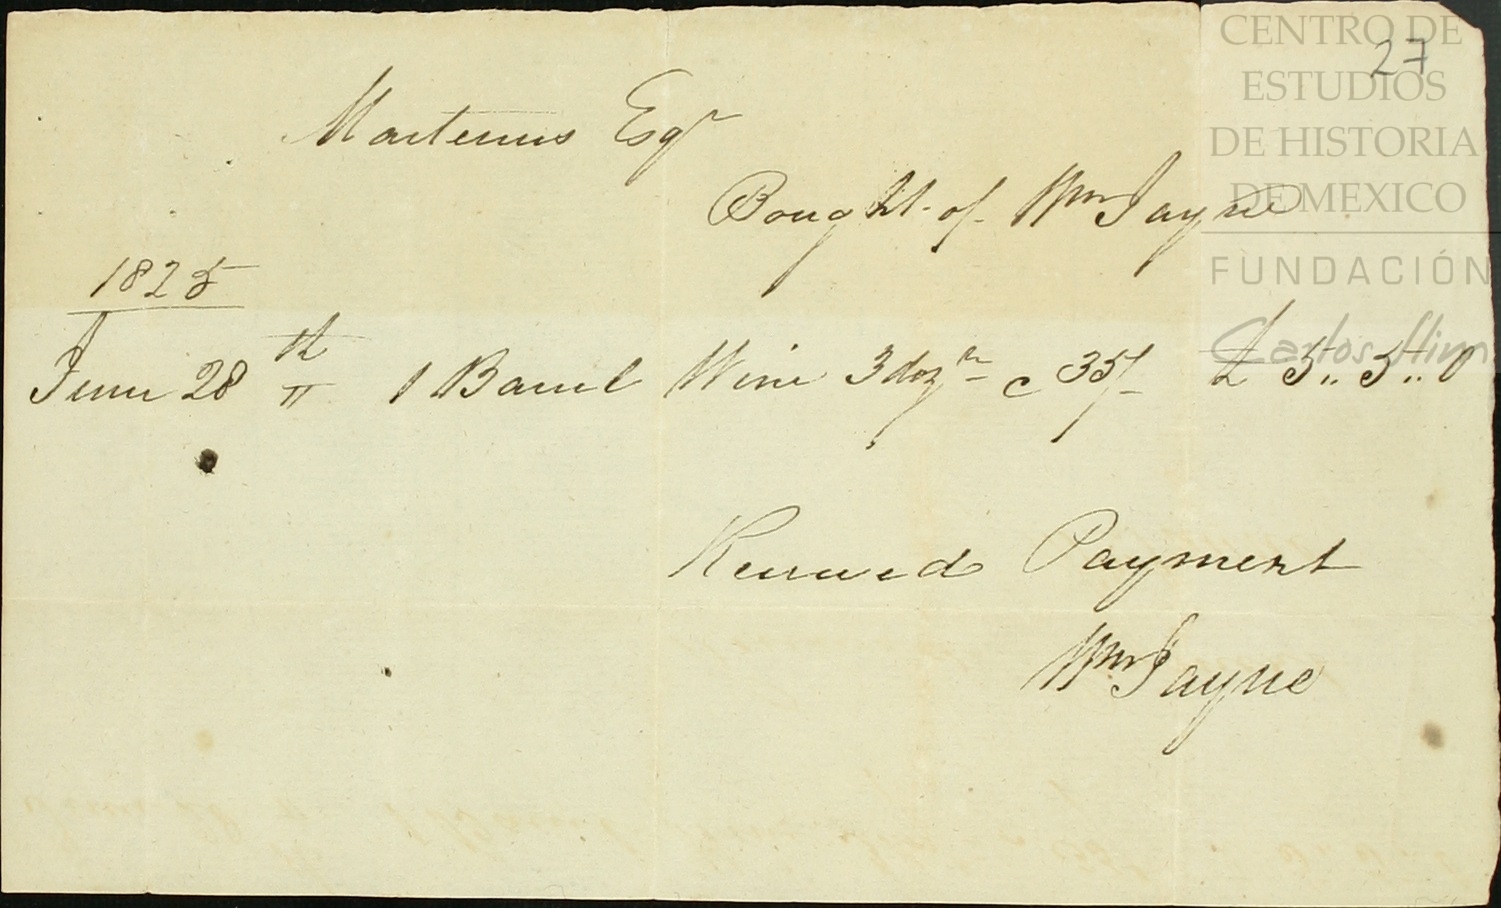 27
CENTRO DE
ESTUDIOS
DE HISTORIA
DE MEXICO
FUNDACIÓN
Carlos Slim
Martenus Esqr
Bought of Wm Jayne
1825
June 28th 1 Barrel Wine 3 dozn c 35/- £ 5..5..0
Received Payment
Wm Jayne